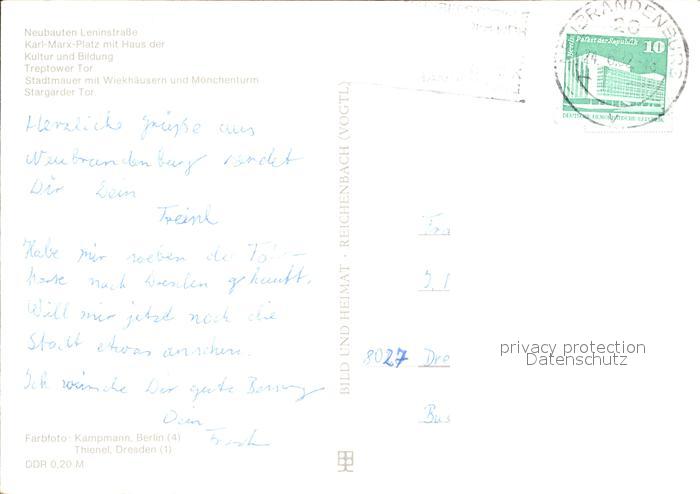 Neubauten Leninstraße
Karl-Marx-Platz mit Haus der
Kultur und Bildung
Treptower Tor
Stadtmauer mit Wiekhäusern und Mönchenturm
Stargarder Tor
Herzliche Grüße aus
Neubrandenburg sendet
Dir Dein
Habe mir soeben die
nach Dresden gekauft.
Will mir jetzt noch die
Stadt etwas ansehen.
Ich wünsche Dir gute Besserung
Dein
Farbfoto: Kampmann, Berlin (4)
Thienel, Dresden (1)
DDR 0,20 M
BILD UND HEIMAT · REICHENBACH (VOGTL)
NEUBRANDENBURG
20
Berlin Palast der Republik
10
DEUTSCHE DEMOKRATISCHE REPUBLIK
Fra
8027 Dre
Bus
privacy protection
Datenschutz